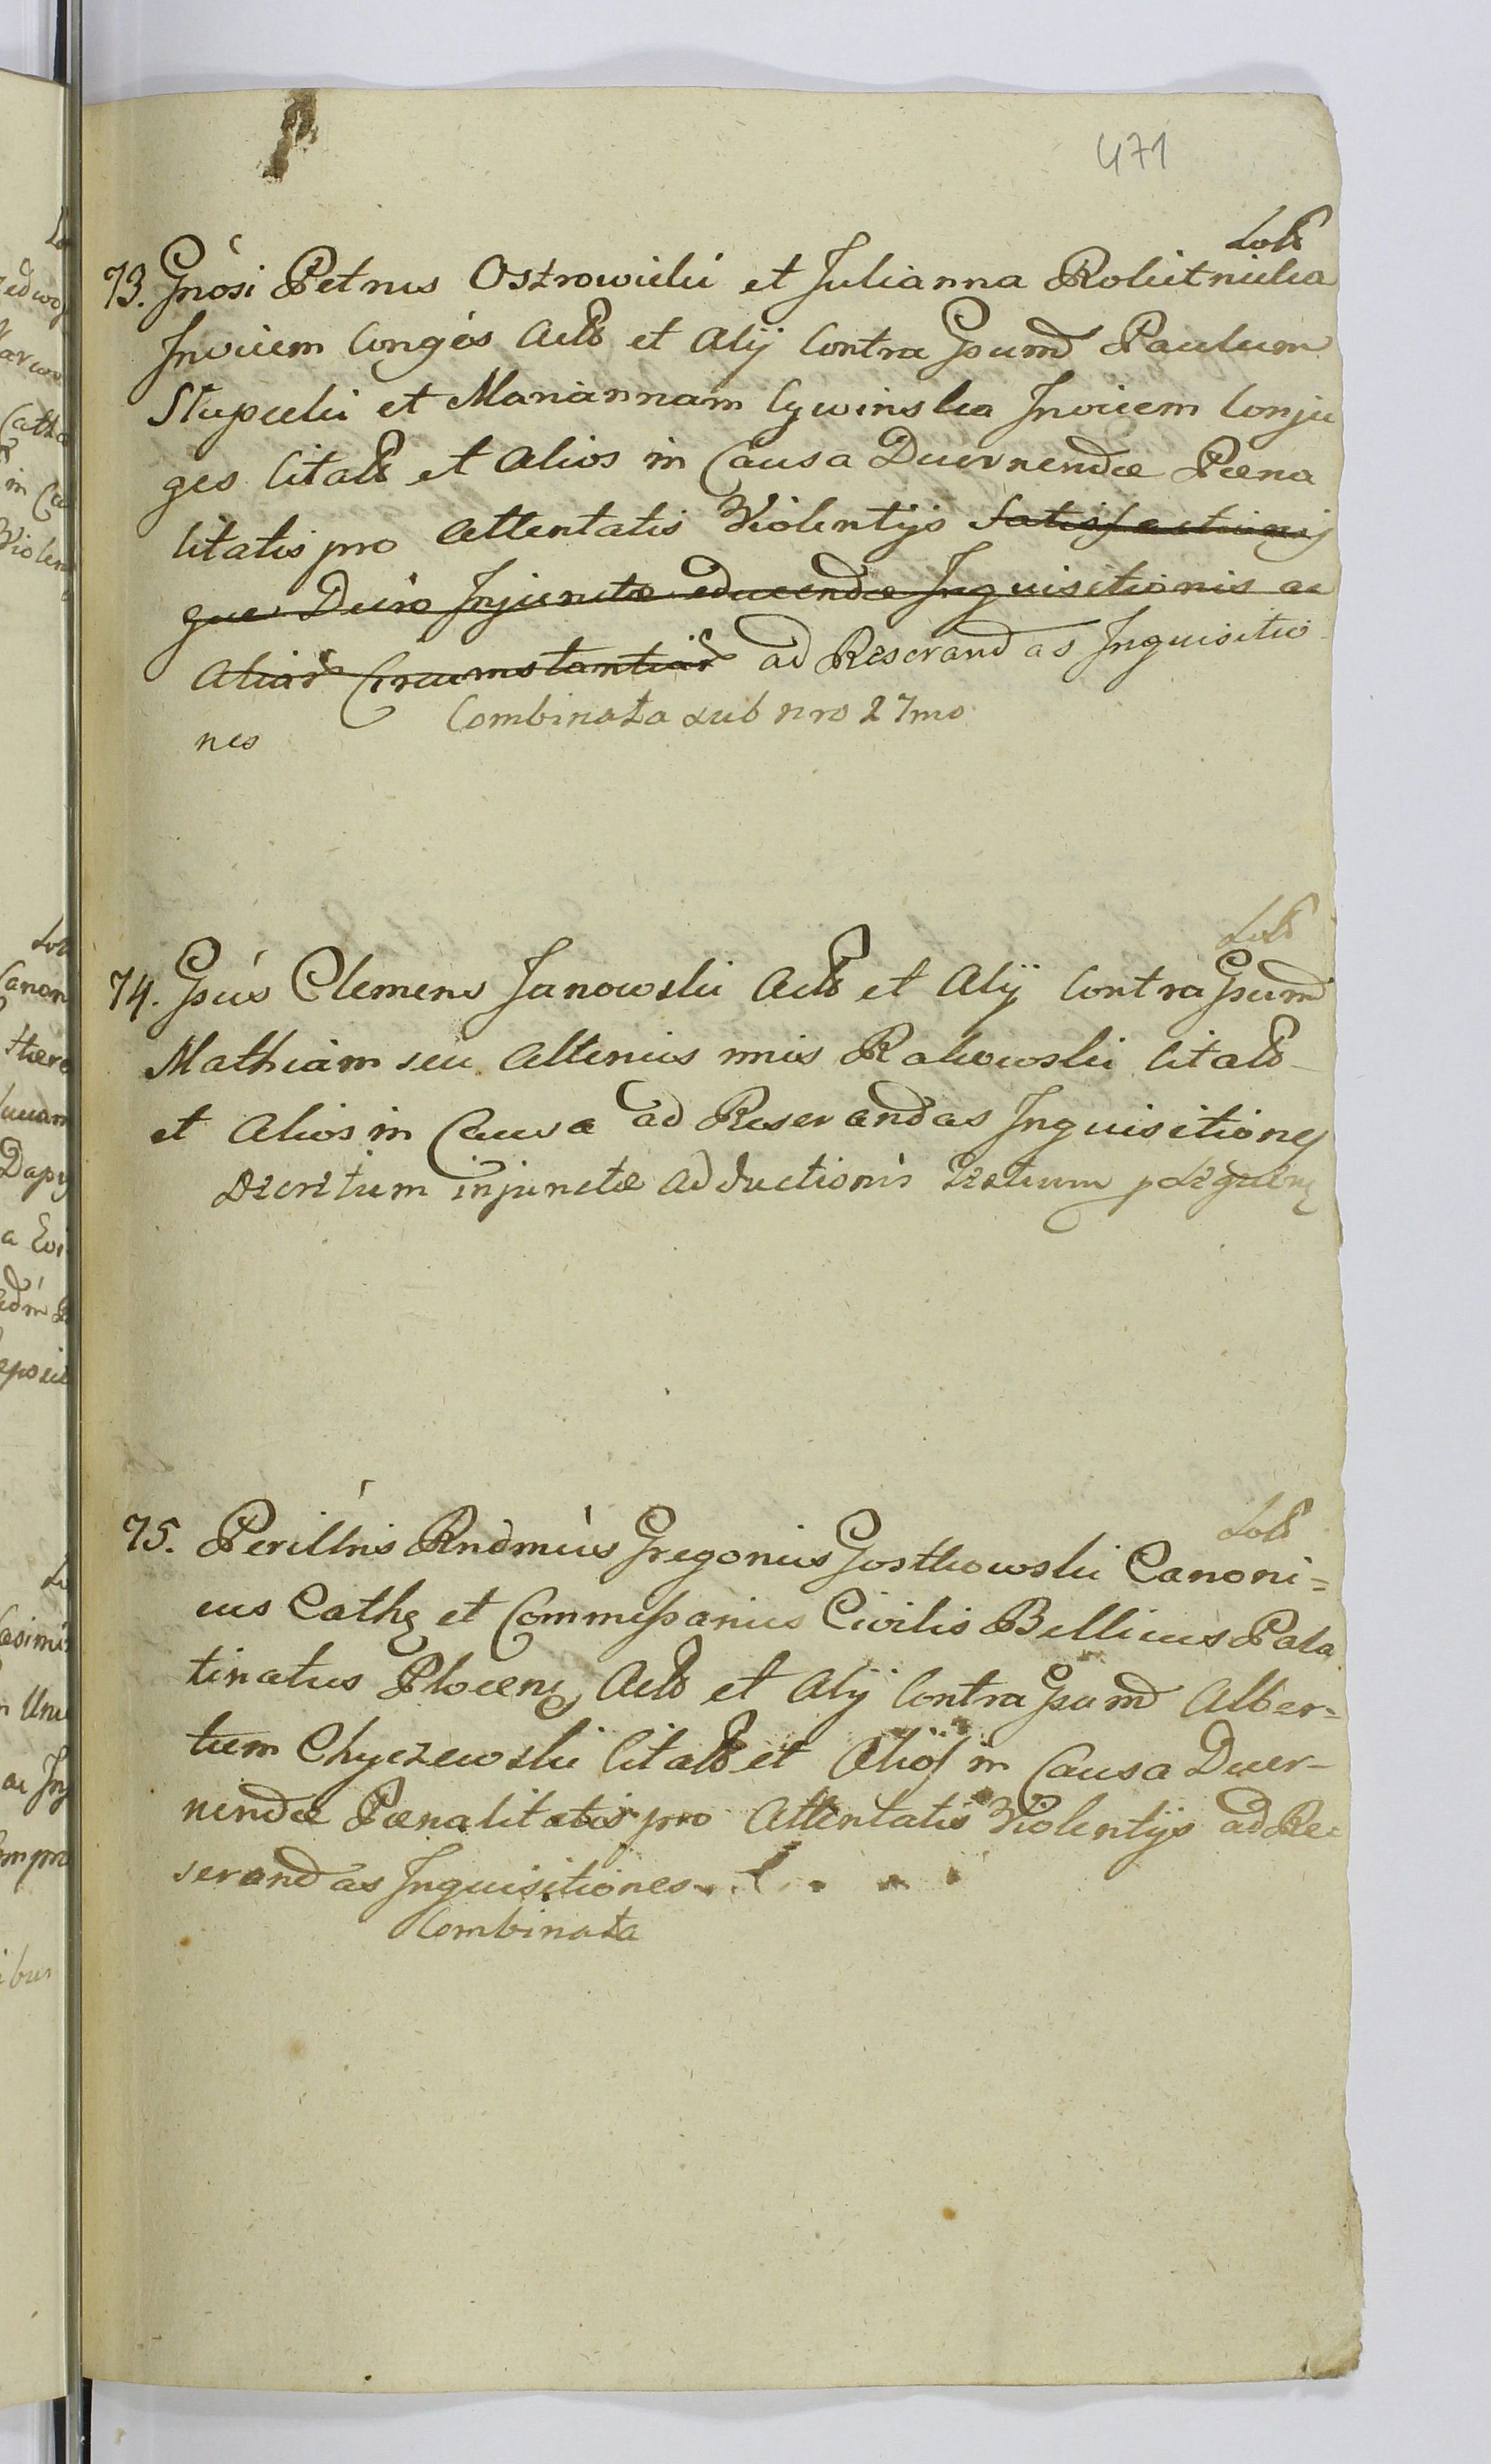 471
Solt
73. Gnosi Petrus Ostrowicki et Julianna Rokitnicka
Invicem Conges Actt et Alij Contra Gsumd Paulum
Słupecki et Mariannam Cywinska Invicem Conju
ges Citatt et Alios in Causa Decernendæ Pœna
litatis pro Attentatis Violentijs Satisfactionis
que Decro Injunctæ educendæ Inquisitionis ac
Aliar Circumstantiar ad Reserandas Inquisitio
nes Combinata sub nro 27mo
Solt
74. Gsus Clemens Janowski Actt et Alij Contra Gsumd
Mathiam seu Alterius nnis Rakowski Citatt
et Alios in Causa ad Reserandas Inquisitiones
Decretum injunctæ adductionis
Solt
75. Perillris Rndmus Gregorius Gostkowski Canoni=
cus Cathz et Commissarius Civilis Bellicus Pala
tinatus Plocenz Actt et Alij Contra Gsumd Alber=
tum Chyczewski Citatt et Alios in Causa Decer-
nendæ Pœnalitatis pro Attentatis Violentijs ad Re
serandas Inquisitiones
Combinata